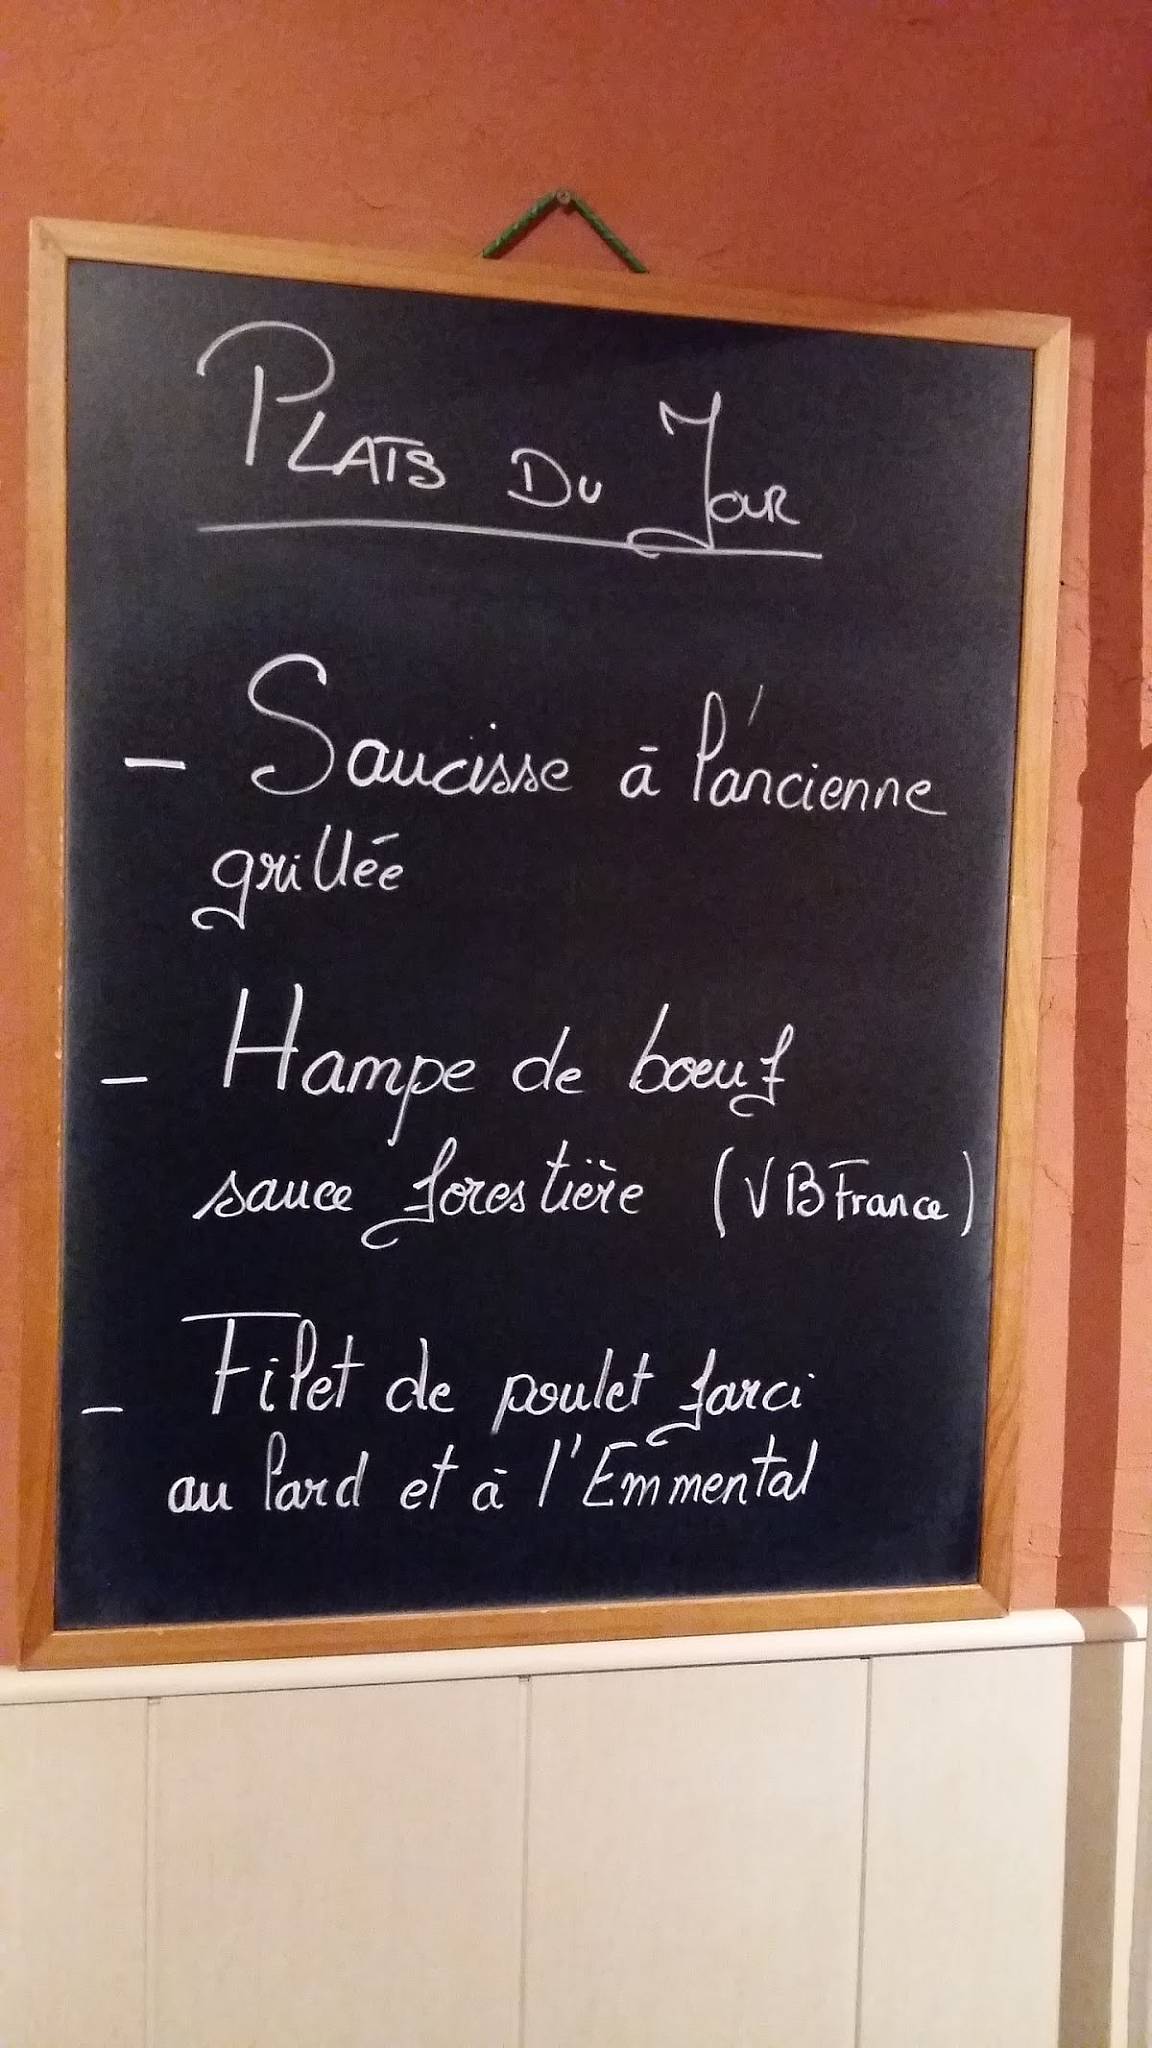 PLATS DU JOUR
- Saucisse à l'ancienne
grillée
- Hampe de bœuf
sauce forestière (VBFrance)
- Filet de poulet farci
au lard et à l'Emmental